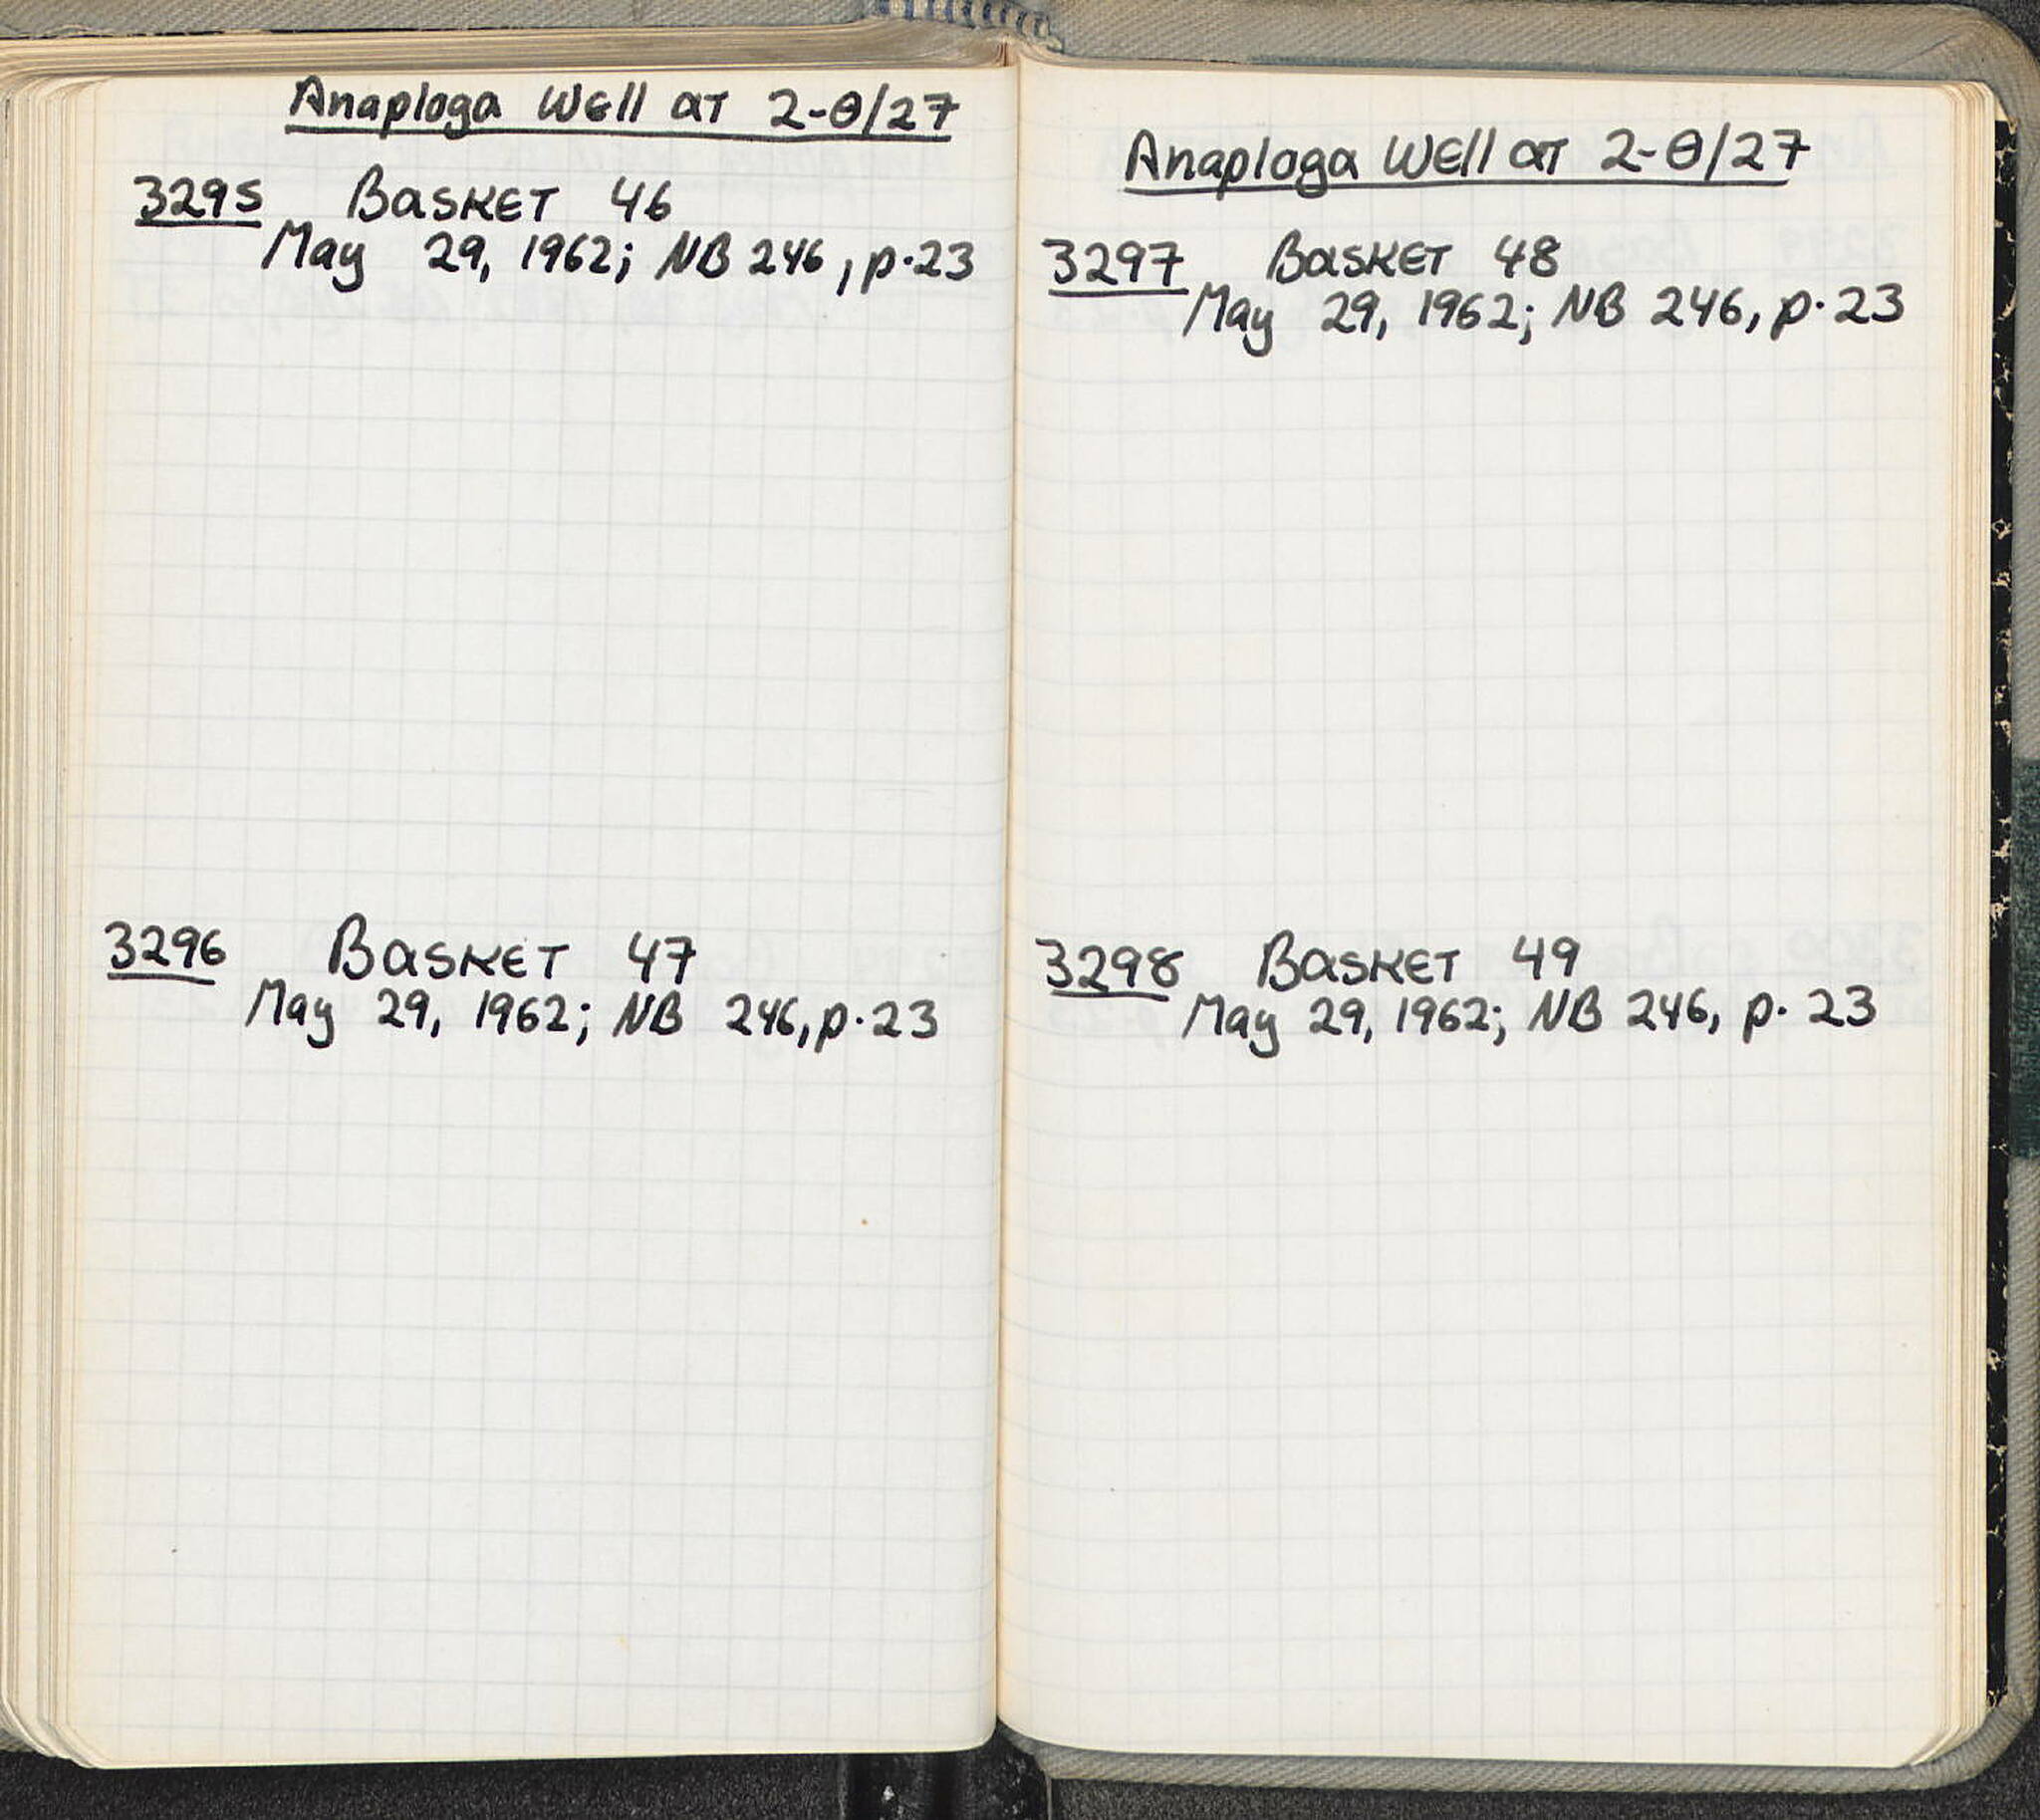 Anaploga Well at 2-Θ/27
3295 Basket 46
May 29, 1962; NB 246, p.23
3296 Basket 47
May 29, 1962; NB 246, p.23
Anaploga Well at 2-Θ/27
3297 Basket 48
May 29, 1962; NB 246, p.23
3298 Basket 49
May 29, 1962; NB 246, p. 23